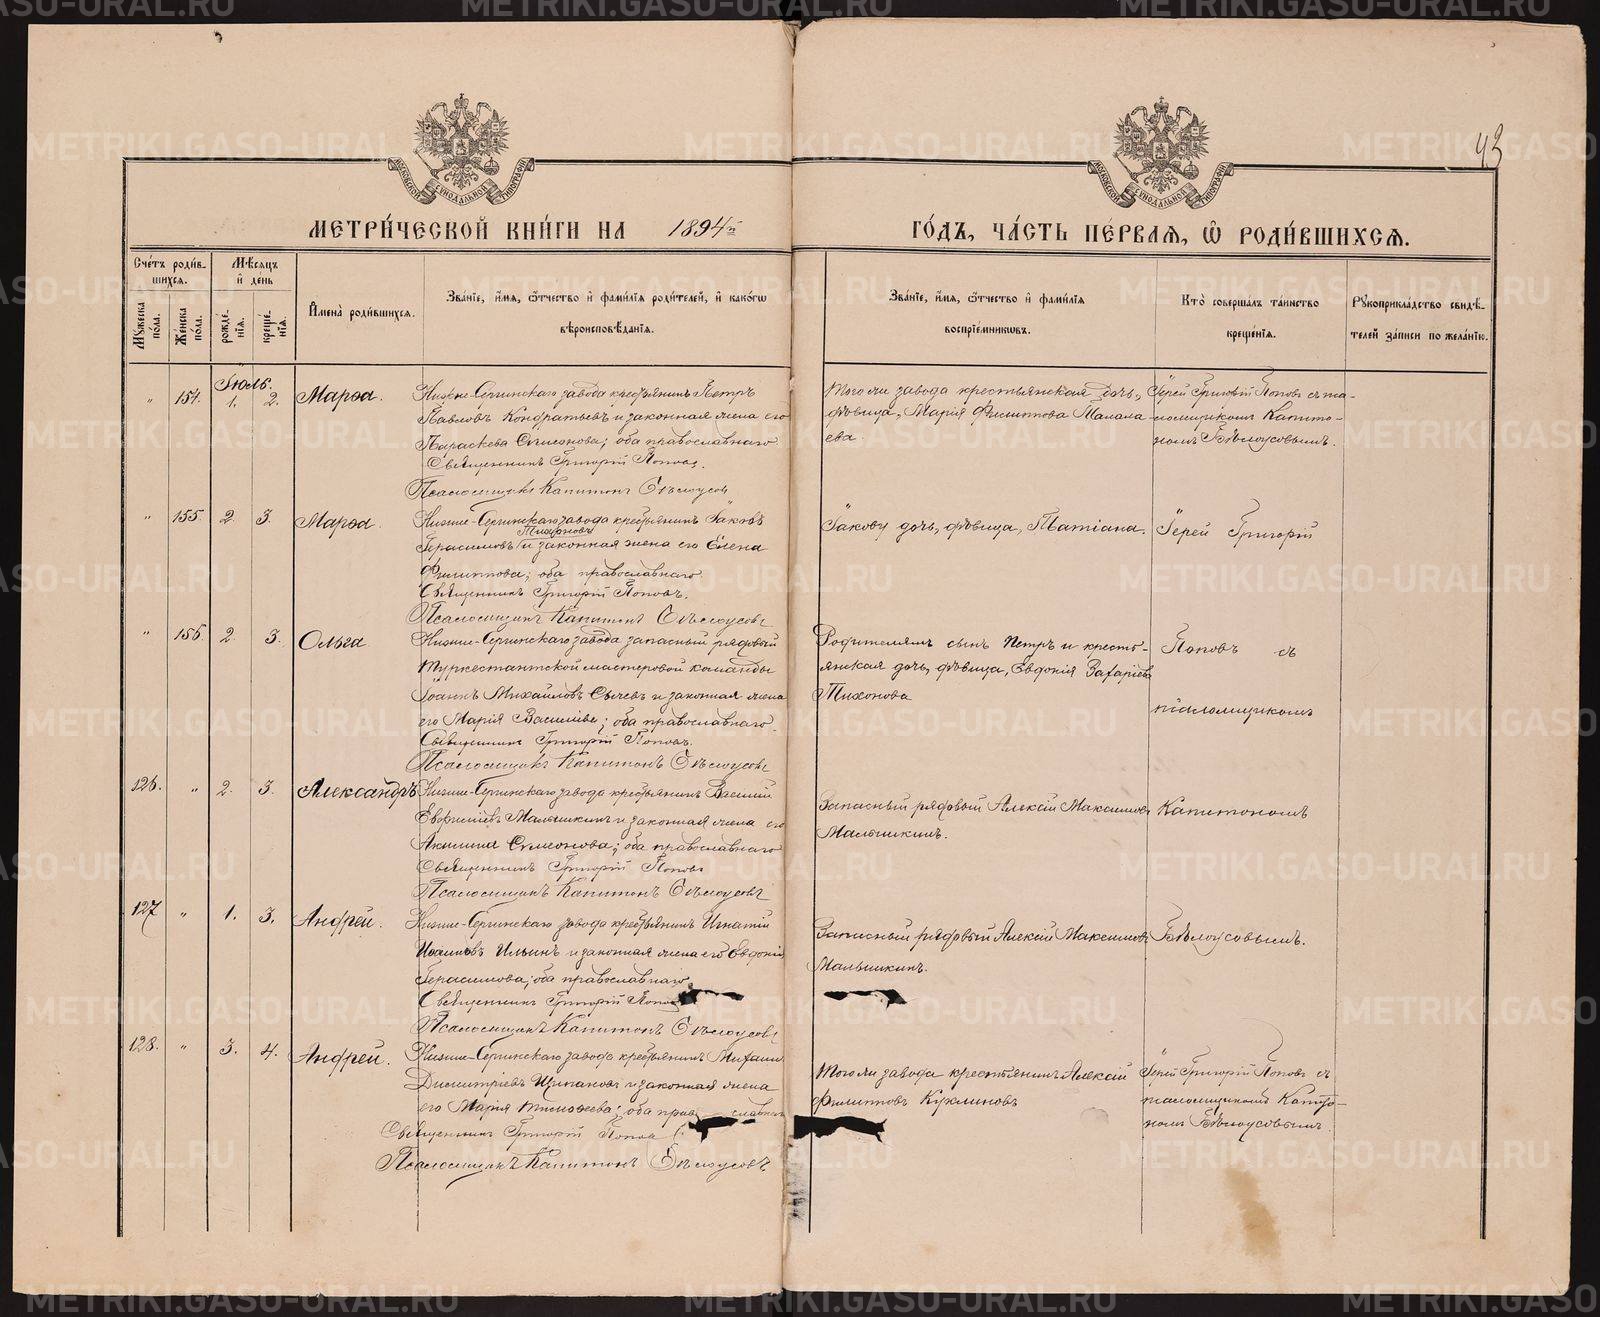 43
МЕТРИ́ЧЕСКОЙ КНИ́ГИ НА 1894й ГО́ДЪ, ЧА́СТЬ ПЕ́РВАЯ, Ѡ РОДИ́ВШИХСѦ.
МОСКОВСКОЙ СѴНОДАЛЬНОЙ ТИПОГРАФІИ
МОСКОВСКОЙ СѴНОДАЛЬНОЙ ТИПОГРАФІИ
Сче́тъ роди́вшихся.
Мѣ́сяцъ и҆ де́нь
Мꙋ́жеска по́ла.
Же́нска по́ла.
рожде́нїя.
креще́нїя.
И҆мена̀ роди́вшихся.
Зва́нїе, и҆́мя, ѻ҆́тчество и҆ фами́лїя роди́телей, и҆ како́гѡ
вѣроисповѣ́данїя.
Зва́нїе, и҆́мя, ѻ҆́тчество и҆ фами́лїя
воспрїе́мникѡвъ.
Кто̀ соверша́лъ та́инство
креще́нїя.
Рꙋкоприкла́дство свидѣ́-
телей за́писи по жела́нїю.
Іюль.
" 154. 1. 2. Марѳа.
Нижне-Сергинскаго завода крестьянинъ Петръ
Павловъ Кондратьевъ и законная жена его
Параскева Симеонова; оба православнаго
Священникъ Григорій Поповъ.
Псаломщикъ Капитонъ Бѣлоусовъ
Того же завода крестьянская дочь,
дѣвица, Марія Филиппова
Іерей Григорій Поповъ съ пса-
ломщикомъ Капито-
номъ Бѣлоусовымъ.
" 155. 2. 3. Марѳа.
Нижне-Сергинскаго завода крестьянинъ Іаковъ
Тихоновъ
Герасимовъ и законная жена его Елена
Филиппова; оба православнаго
Священникъ Григорій Поповъ.
Псаломщикъ Капитонъ Бѣлоусовъ
Іакову дочь, дѣвица, Татіана.
Іерей Григорій
" 156. 2. 3. Ольга
Нижне-Сергинскаго завода запасный рядовый
Туркестантской мастеровой команды
Іоаннъ Михайловъ Сычевъ и законная жена
его Марія Василіева; оба православнаго
Священникъ Григорій Поповъ.
Псаломщикъ Капитонъ Бѣлоусовъ
Родителямъ сынъ Петръ и кресть-
янская дочь, дѣвица, Евдокія Захаріева
Тихонова
Поповъ съ
псаломщикомъ
126. " 2. 3. Александръ
Нижне-Сергинскаго завода крестьянинъ Василій
Мальшкинъ и законная жена его
Акилина Симеонова; оба православнаго
Священникъ Григорій Поповъ
Псаломщикъ Капитонъ Бѣлоусовъ
Запасный рядовый Алексій Максимовъ
Мальшкинъ.
Капитономъ
127 " 1. 3. Андрей.
Нижне-Сергинскаго завода крестьянинъ Игнатій
Иоанновъ Ильинъ и законная жена его Евдокія
Герасимова; оба православнаго
Священникъ Григорій Поповъ
Псаломщикъ Капитонъ Бѣлоусовъ
Запасный рядовый Алексій Максимовъ
Мальшкинъ.
Бѣлоусовымъ.
128. " 3. 4. Андрей.
Нижне-Сергинскаго завода крестьянинъ Михаилъ
Димитріевъ Щипановъ и законная жена
его Марія Тимоѳеева; оба православнаго
Священникъ Григорій Поповъ
Псаломщикъ Капитонъ Бѣлоусовъ
Того же завода крестьянинъ Алексій
Филипповъ Куклиновъ
Іерей Григорій Поповъ съ
псаломщикомъ Капито-
номъ Бѣлоусовымъ.
METRIKI.GASO-URAL.RU